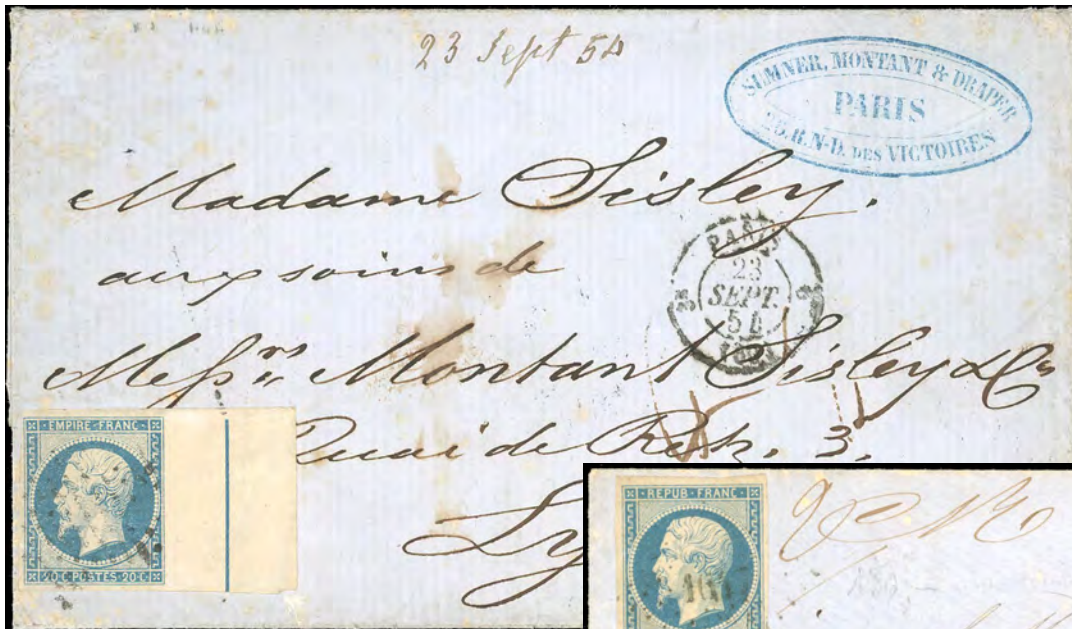 23 Sept 54
SUMNER, MONTANT & DRAPER
PARIS
R. N-D. DES VICTOIRES
Madame Sisley.
aux soins de
PARIS
23
SEPT.
54
Messrs Montant Sisley & Co
Quai de Retz. 3.
Ly
EMPIRE FRANC
20 C POSTES 20 C
REPUB FRANC